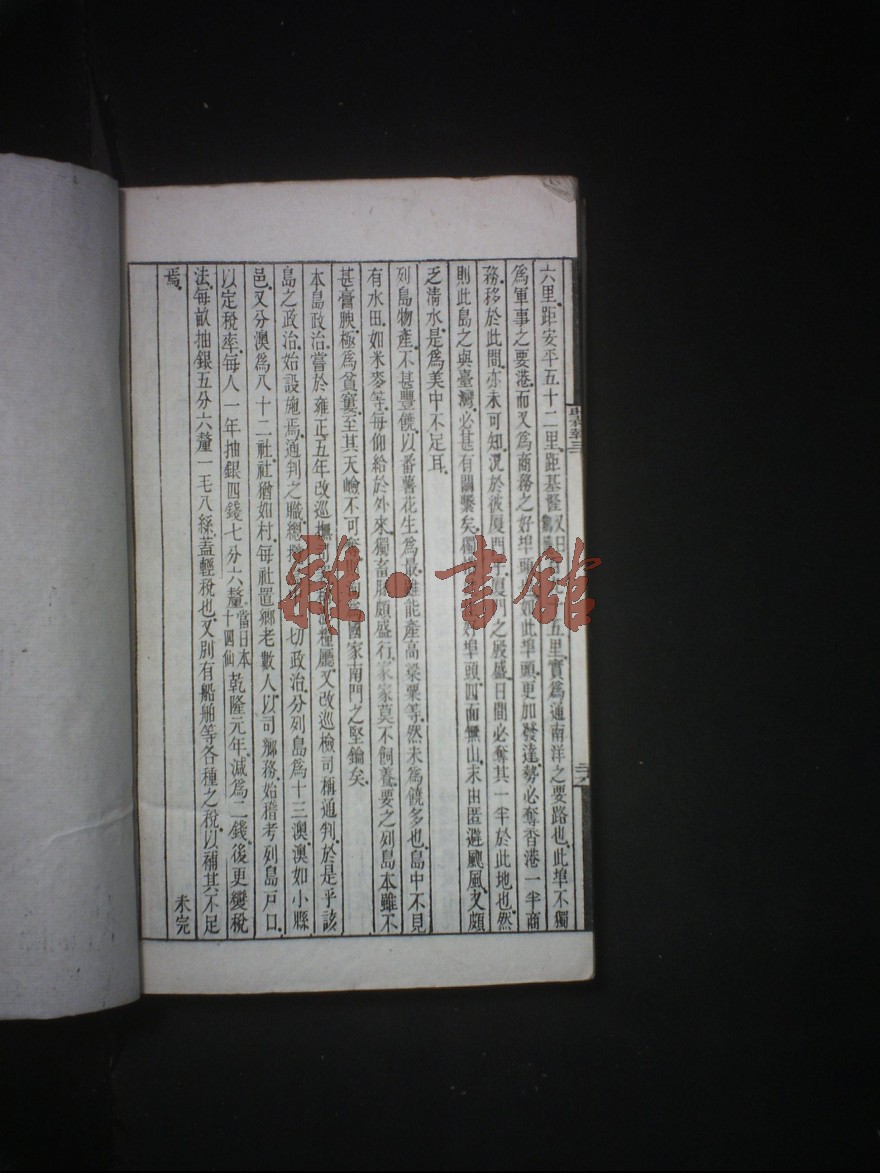 六里、距安平五十二里、距基隆五里、實爲通南洋之要路也、此埠不獨
爲軍事之要港、而又爲商務之好埠頭、如此埠頭、更加發達、勢必奪香港一半商
務、移於此間、亦未可知、況於彼厦門乎、厦門之殷盛、日間必奪其一半於此地也、然
則此島之與臺灣、必甚有關繫矣、獨好埠頭、四面無山、未由匿避颶風、又頗
乏淸水、是爲美中不足耳、
列島物產、不甚豐饒、以番薯花生爲最、雖能產高梁粟等、然未爲饒多也、島中不見
有水田、如米麥等、每仰給於外來、獨畜豚頗盛行、家家莫不飼養、要之列島本雖不
甚膏腴、極爲貧窶、至其天嶮不可奪、國家南門之堅鑰矣、
本島政治、嘗於雍正五年改巡檢司糧廳、又改巡檢司稱通判、於是乎該
島之政治、始設施焉、通判之職、總切政治、分列島爲十三澳、澳如小縣
邑、又分澳爲八十二社、社猶如村、每社置鄉老數人、以司鄉務、始稽考列島戶口、
以定稅率、每人一年抽銀四錢七分六釐當日本十四仙乾隆元年、減爲二錢、後更變稅
法、每畝抽銀五分六釐一毛八絲、蓋輕稅也、又別有船舶等各種之稅、以補其不足
焉、
未完
雜·書館